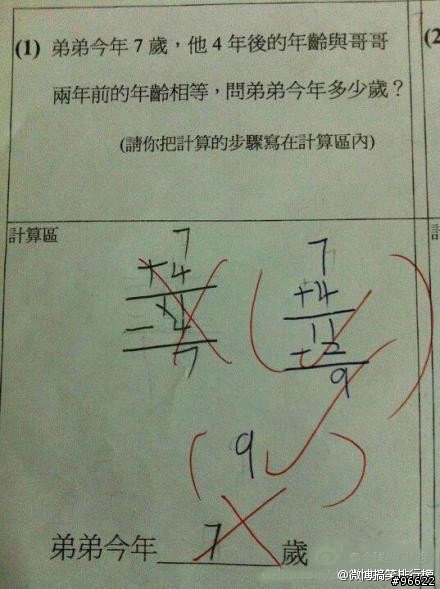 (1) 弟弟今年 7 歲，他 4 年後的年齡與哥哥
兩年前的年齡相等，問弟弟今年多少歲？
(請你把計算的步驟寫在計算區內)
(2
計算區
7
+4
11
-4
7
7
+4
11
-2
9
(9)
弟弟今年 7 歲
weibo.com/
@微博搞笑排行榜
#96622